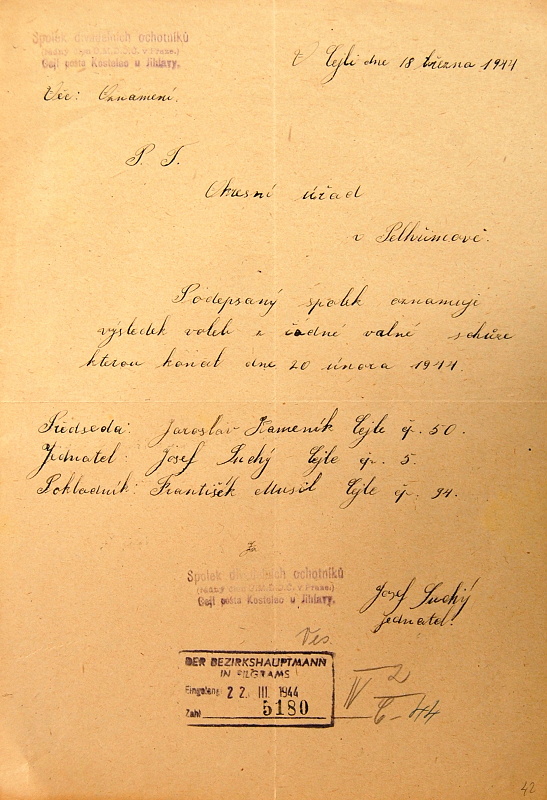 Spolek divadelních ochotníků
(řádný člen Ú.M.D.O.Č. v Praze.)
Cejl pošta Kostelec u Jihlavy.
V Cejli dne 18 března 1944
Věc: Oznamení.
P. T.
Okresní úřad
v Pelhřimově.
Podepsaný spolek oznamuje
výsledek voleb z řádné valné schůze
kterou konal dne 20 února 1944.
Předseda: Jaroslav Kameník Cejle čp. 50.
Jednatel: Josef Suchý Cejle čp. 5.
Pokladník: František Musil Cejle čp. 94.
Za
Spolek divadelních ochotníků
(řádný člen Ú.M.D.O.Č. v Praze.)
Cejl pošta Kostelec u Jihlavy.
Josef Suchý
jednatel.
Ves.
DER BEZIRKSHAUPTMANN
IN PILGRAMS
Eingelangt 22. III. 1944
Zahl 5180
IV 2
42